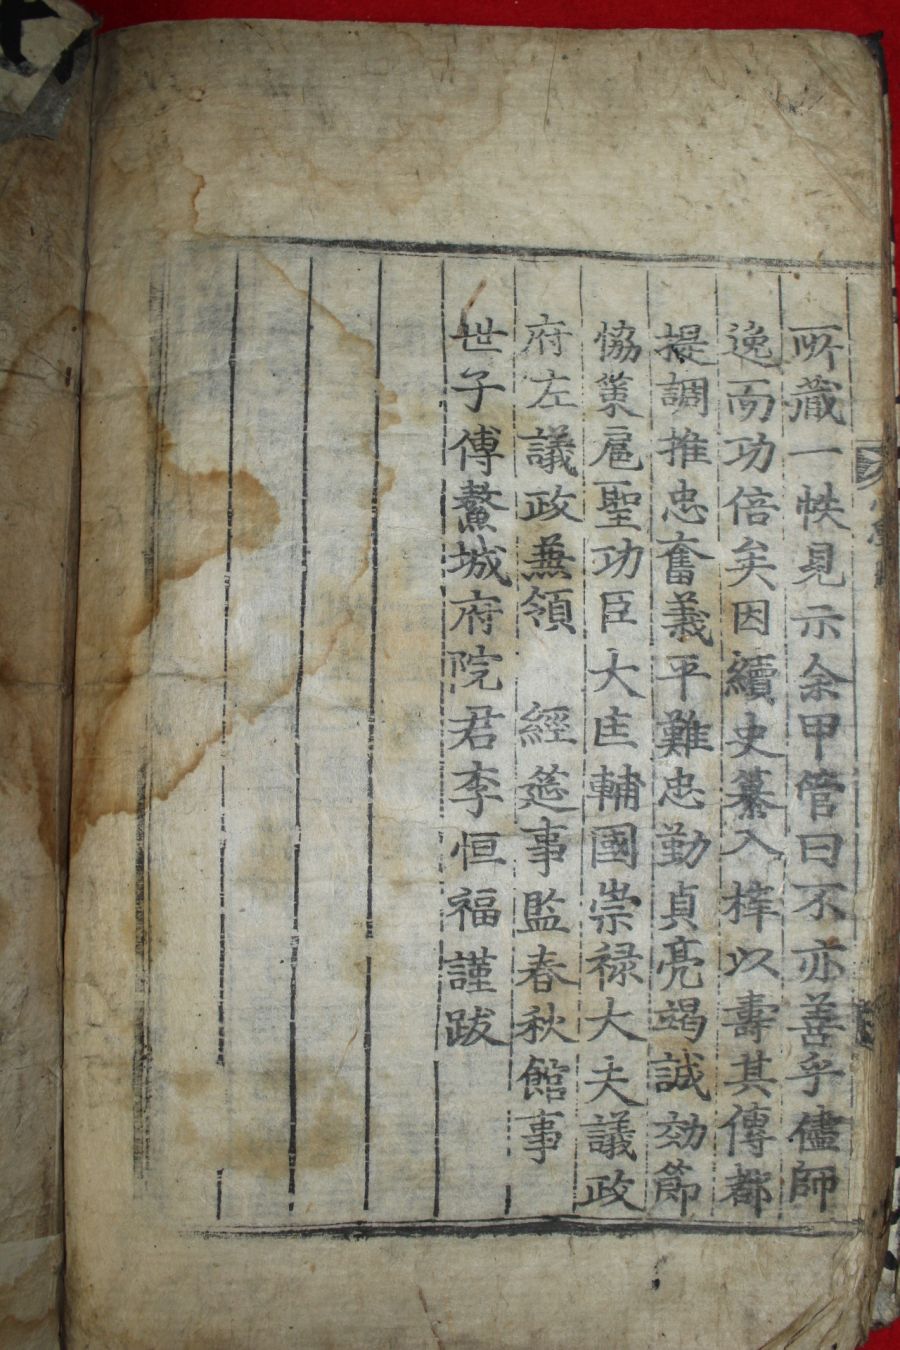 所藏一帙見示余甲管曰不亦善乎儘師
逸而功倍矣因續史纂入榟以壽其傳都
提調推忠奮義平難忠勤貞亮竭誠効節
恊策扈聖功臣大匡輔國崇禄大夫議政
府左議政兼領　經筵事監春秋館事
世子傅鰲城府院君李恒福謹跋